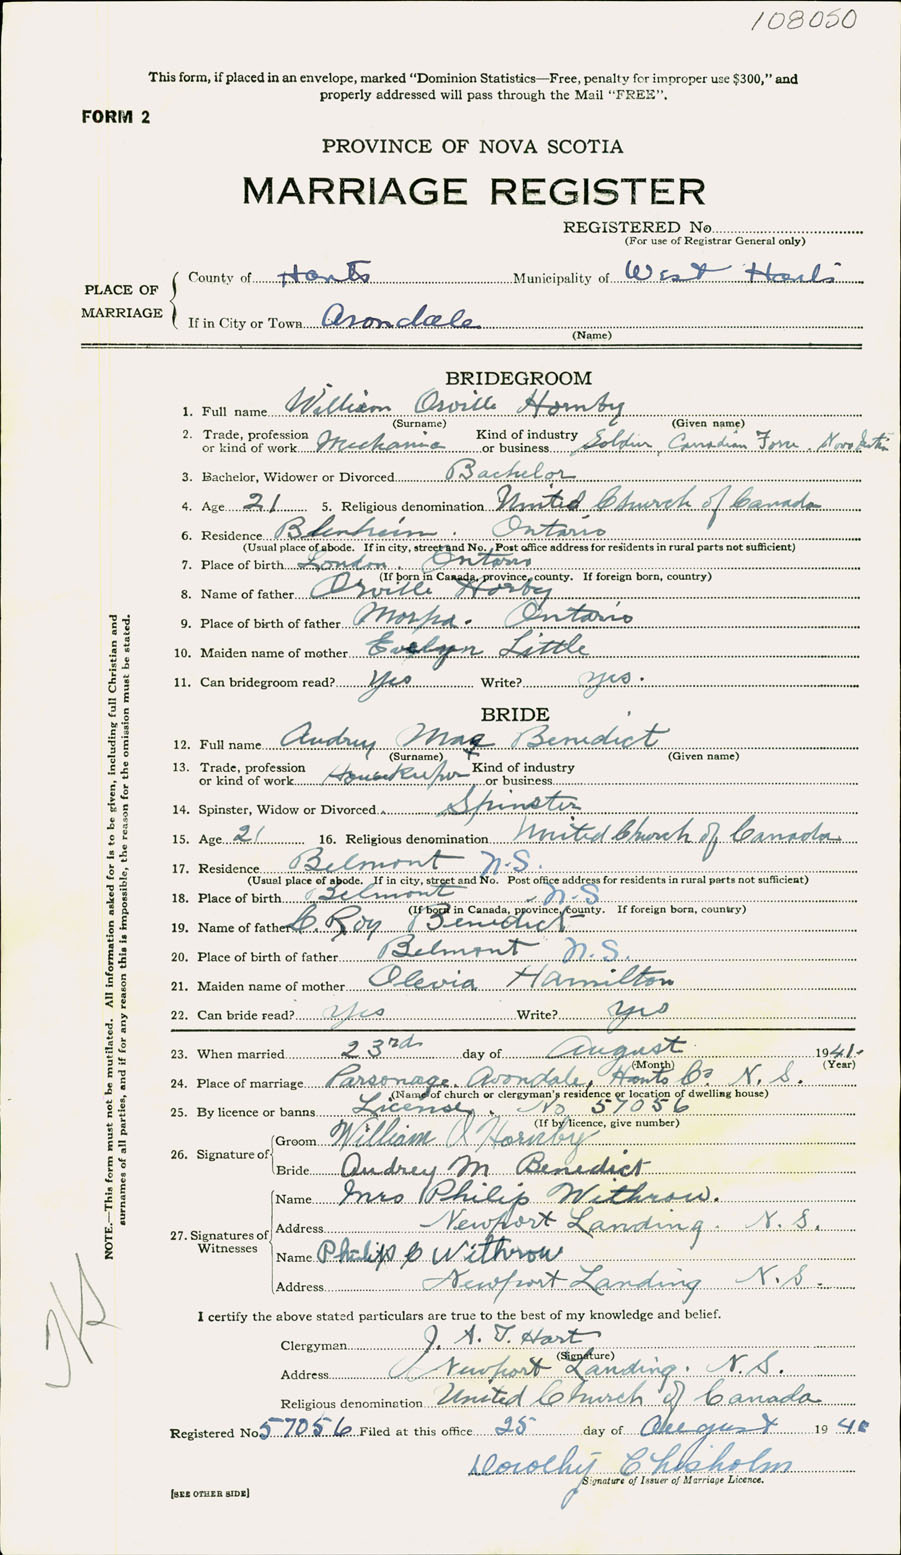 108050
This form, if placed in an envelope, marked “Dominion Statistics—Free, penalty for improper use $300,” and
properly addressed will pass through the Mail “FREE”.
FORM 2
PROVINCE OF NOVA SCOTIA
MARRIAGE REGISTER
REGISTERED No
(For use of Registrar General only)
PLACE OF MARRIAGE
County of Hants Municipality of West Hants
If in City or Town Avondale
(Name)
BRIDEGROOM
1. Full name William Orville Hornby
(Surname) (Given name)
2. Trade, profession or kind of work Mechanic Kind of industry or business Soldier, Canadian Force, Nova Scotia
3. Bachelor, Widower or Divorced Bachelor
4. Age 21 5. Religious denomination United Church of Canada
6. Residence Blenheim. Ontario
(Usual place of abode. If in city, street and No. Post office address for residents in rural parts not sufficient)
7. Place of birth London. Ontario
(If born in Canada, province, county. If foreign born, country)
8. Name of father Orville Horby
9. Place of birth of father Morpa. Ontario
10. Maiden name of mother Evelyn Little
11. Can bridegroom read? Yes Write? yes.
BRIDE
12. Full name Audrey Mae Benedict
(Surname) (Given name)
13. Trade, profession or kind of work Housekeeper Kind of industry or business
14. Spinster, Widow or Divorced Spinster
15. Age 21 16. Religious denomination United Church of Canada
17. Residence Belmont N.S.
(Usual place of abode. If in city, street and No. Post office address for residents in rural parts not sufficient)
18. Place of birth Belmont N.S
(If born in Canada, province, county. If foreign born, country)
19. Name of father C. Roy Benedict
20. Place of birth of father Belmont N.S.
21. Maiden name of mother Olevia Hamilton
22. Can bride read? Yes Write? Yes
23. When married 23rd day of August 1941.
(Month) (Year)
24. Place of marriage Parsonage. Avondale, Hants Co. N. S.
(Name of church or clergyman's residence or location of dwelling house)
25. By licence or banns License. No 57056
(If by licence, give number)
26. Signature of Groom William O Hornby
Bride Audrey M Benedict
27. Signatures of Witnesses
Name Mrs Philip Withrow.
Address Newport Landing. N. S.
Name Philip C Withrow
Address Newport Landing N.S.
I certify the above stated particulars are true to the best of my knowledge and belief.
Clergyman J. A. T. Hart
(Signature)
Address Newport Landing. N.S.
Religious denomination United Church of Canada
Registered No 57056 Filed at this office 25 day of August 19
Dorothy Chisholm
Signature of Issuer of Marriage Licence.
[SEE OTHER SIDE]
NOTE.—This form must not be mutilated. All information asked for is to be given, including full Christian and
surnames of all parties, and if for any reason this is impossible, the reason for the omission must be stated.